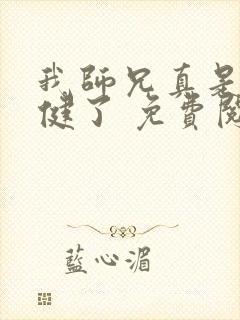 我師兄真是
健了 免費閱
藍心湄